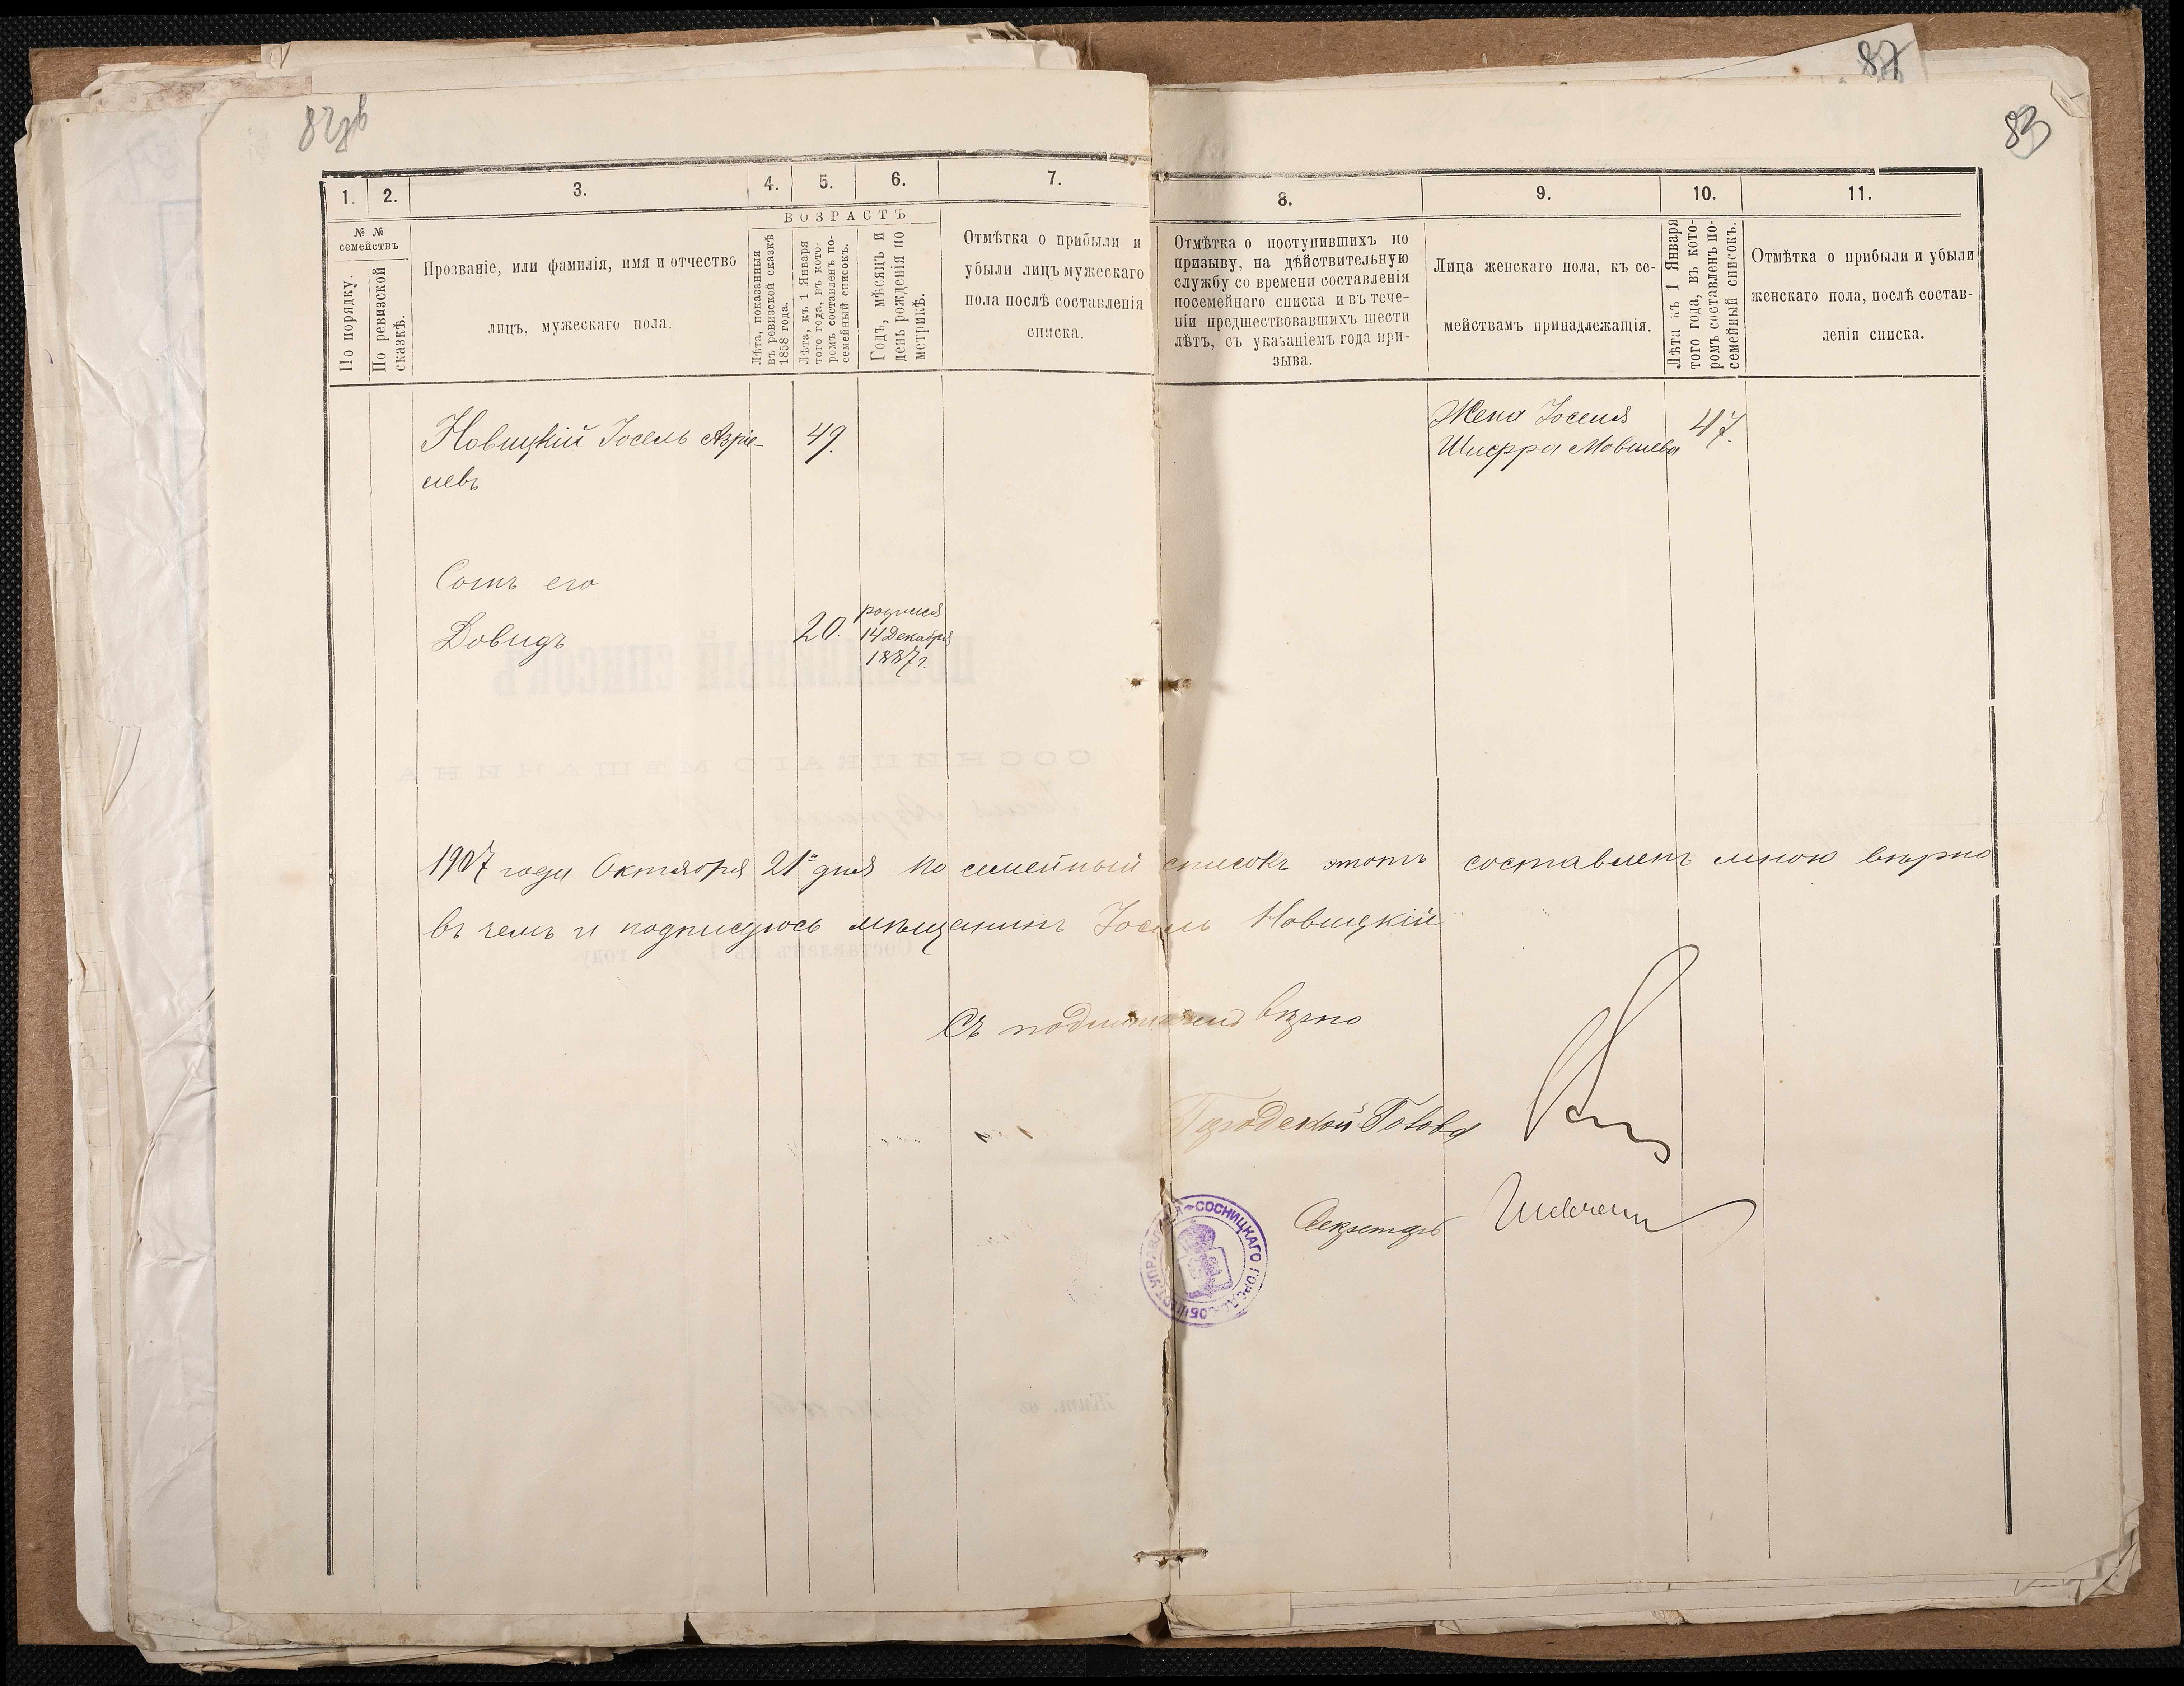 82об
87
83
1. 2. 3. 4. 5. 6. 7. 8. 9. 10. 11.
№ № семействъ
По порядку.
По ревизской сказкѣ.
Прозваніе, или фамилія, имя и отчество
лицъ, мужескаго пола.
ВОЗРАСТЪ
Лѣта, показанныя
въ ревизской сказкѣ
1858 года.
Лѣта, къ 1 Января
того года, въ кото-
ромъ составленъ по-
семейный списокъ.
Годъ, мѣсяцъ и
день рожденія по
метрикѣ.
Отмѣтка о прибыли и
убыли лицъ мужескаго
пола послѣ составленія
списка.
Отмѣтка о поступившихъ по
призыву, на дѣйствительную
службу со времени составленія
посемейнаго списка и въ тече-
ніи предшествовавшихъ шести
лѣтъ, съ указаніемъ года при-
зыва.
Лица женскаго пола, къ се-
мействамъ принадлежащія.
Лѣта къ 1 Января
того года, въ кото-
ромъ составленъ по-
семейный списокъ.
Отмѣтка о прибыли и убыли
женскаго пола, послѣ состав-
ленія списка.
Новицкій Іосель Азріе- 49.
левъ
Жена Іоселя
Шифра Мовшева 47.
Сынъ его
Довидъ 20.
родился
14 Декабря
1887 г.
1907 года Октября 21 дня по семейный списокъ этотъ составленъ мною вѣрно
въ чемъ и подписуюсь мѣщанинъ Іосель Новицкій
Съ подлиннымъ вѣрно
Городской Голова
Секретарь
СОСНИЦКАГО ГОРОДС. ОБЩЕСТ. УПРАВЛЕНІЯ